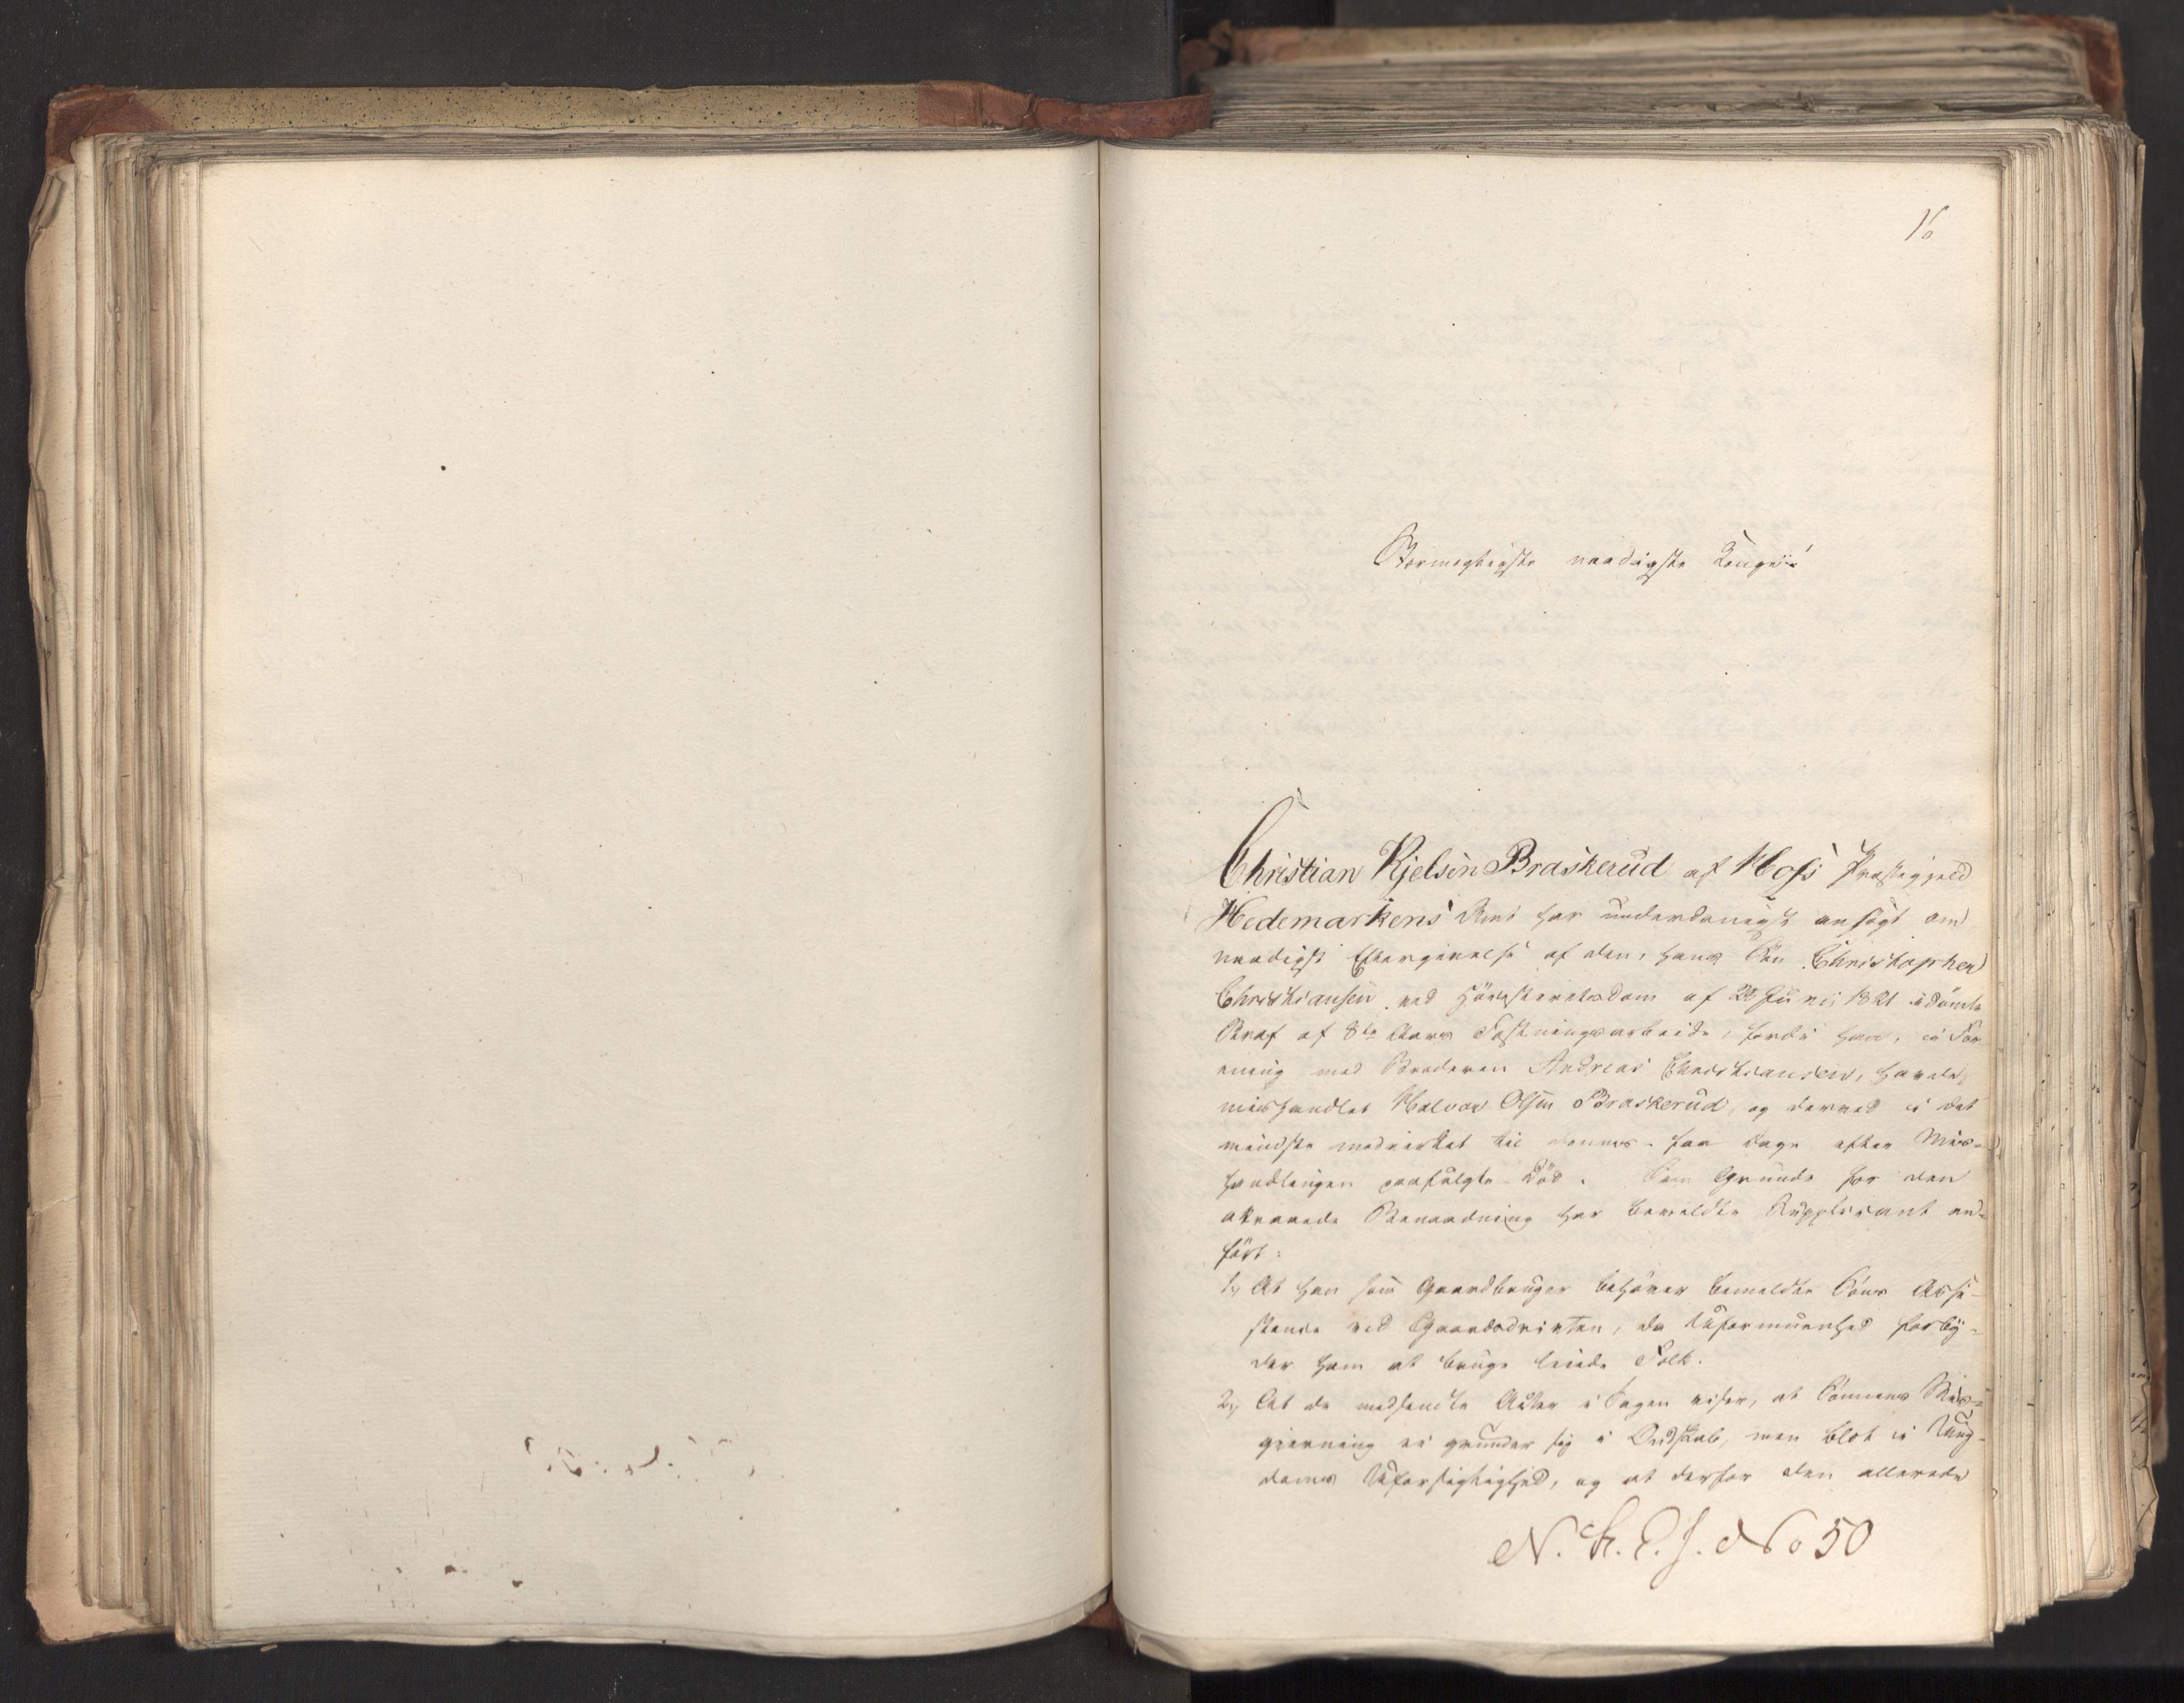 16
Stormægtigste naadigste Konge!
Christian Kjelsen Braskerud af Hofs Præstegjeld
Hedemarkens Amt har underdanigst ansøgt om
naadigst Eftergivelse af den, hans Søn Christopher
Christiansen ved Høiesteretsdom af 28 Juni 1821 idømte
Straf af 8te Aars Fæstningsarbeide, fordi han, i For
ening med Broderen Andreas Christiansen, havde
mishandlet Halvor Olsen Braskerud, og derved i det
mindste medvirket til dennes faa Dage efter Mis-
handlingen paafulgte Död. Som Grunde for den
attraaede Benaadning har bemeldte Supplicant an-
fört:
1, At han som Gaardbruger behøver bemeldte Søns Assi-
stence ved Gaardsdriften, da Uformuenhed forby-
der ham at bruge leiede Folk.
2, At de medsendte Acter i Sagen viser, at Sønnens Mis-
gjerning ei grunder sig i Ondskab, men blot i Ung-
doms Uforsigtighed, og at derfor den allerede
N. R. P. J. No 50